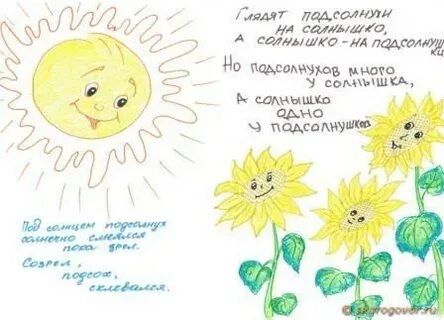 Глядят подсолнухи
на солнышко,
а солнышко - на подсолнушки
Но подсолнухов много
у солнышка,
а солнышко
одно
у подсолнушков
Под солнцем подсолнух
солнечно смеялся
пока зрел.
Созрел,
подсох,
склевался.
© skorogovor.ru